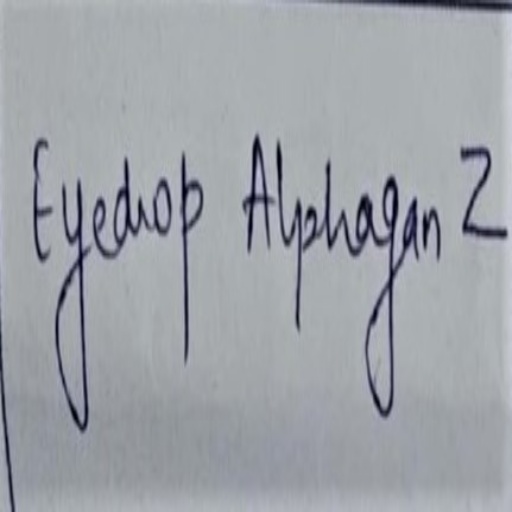 Eyedrop Alphagan Z